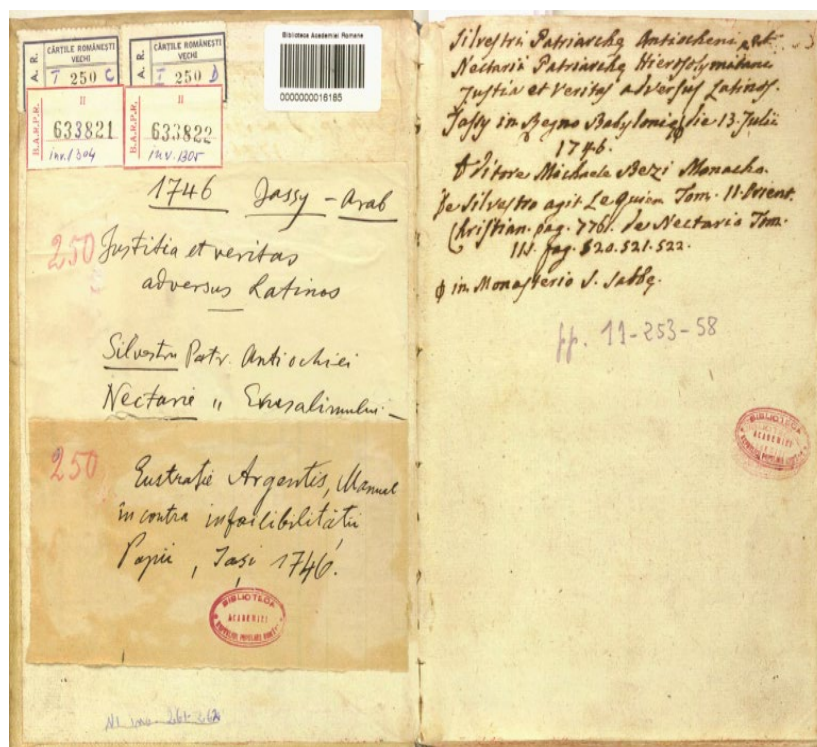 A. R.
CĂRȚILE ROMÂNEȘTI
VECHI
T 250 C
A. R.
CĂRȚILE ROMÂNEȘTI
VECHI
I 250 D
B.A.R.P.R.
II
633821
inv. 1304
B.A.R.P.R.
II
633822
inv. 1305
Biblioteca Academiei Romane
0000000016185
1746 Jassy - Arab
250 Justitia et veritas
adversus Latinos
Silvestru Patr. Antiochiei
Nectarie " Erusalimului
250 Eustratie Argentis, Manual
în contra infailibilității
Papii, Iasi 1746.
BIBLIOTECA
ACADEMIEI
Silvestri Patriarchę Antiocheni, et
Nectarii Patriarchę Hierosolymitani
Justia et Veritas adversus Latinos.
Jassy in Regno Babylonię die 13. Julii
1746.
Editore Michaele Bezi Monacho.
De Silvestro agit Le Quien Tom. II. Orient.
Christian. pag. 776. de Nectario Tom.
III. pag. 520. 521. 522.
ϕ in Monasterio S. Sabbę.
pp. 11-253-58
BIBLIOTECA
ACADEMIEI